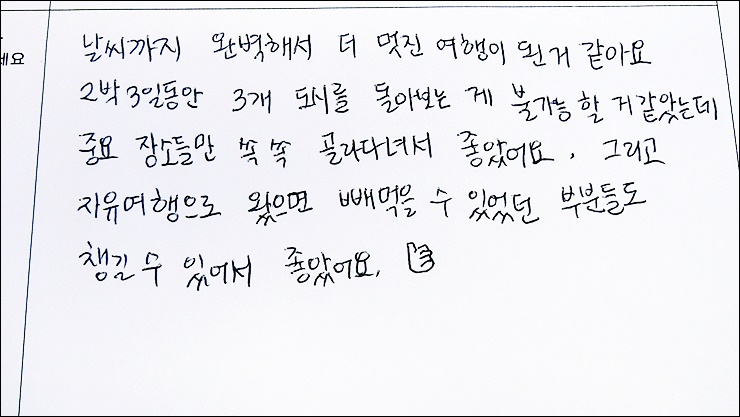 날씨까지 완벽해서 더 멋진 여행이 된거 같아요
세요
2박3일동안 3개 도시를 돌아보는 게 불가능 할 거 같았는데
중요 장소들만 쏙 쏙 골라다녀서 좋았어요. 그리고
자유여행으로 왔으면 빼먹을 수 있었던 부분들도
챙길 수 있어서 좋았어요.